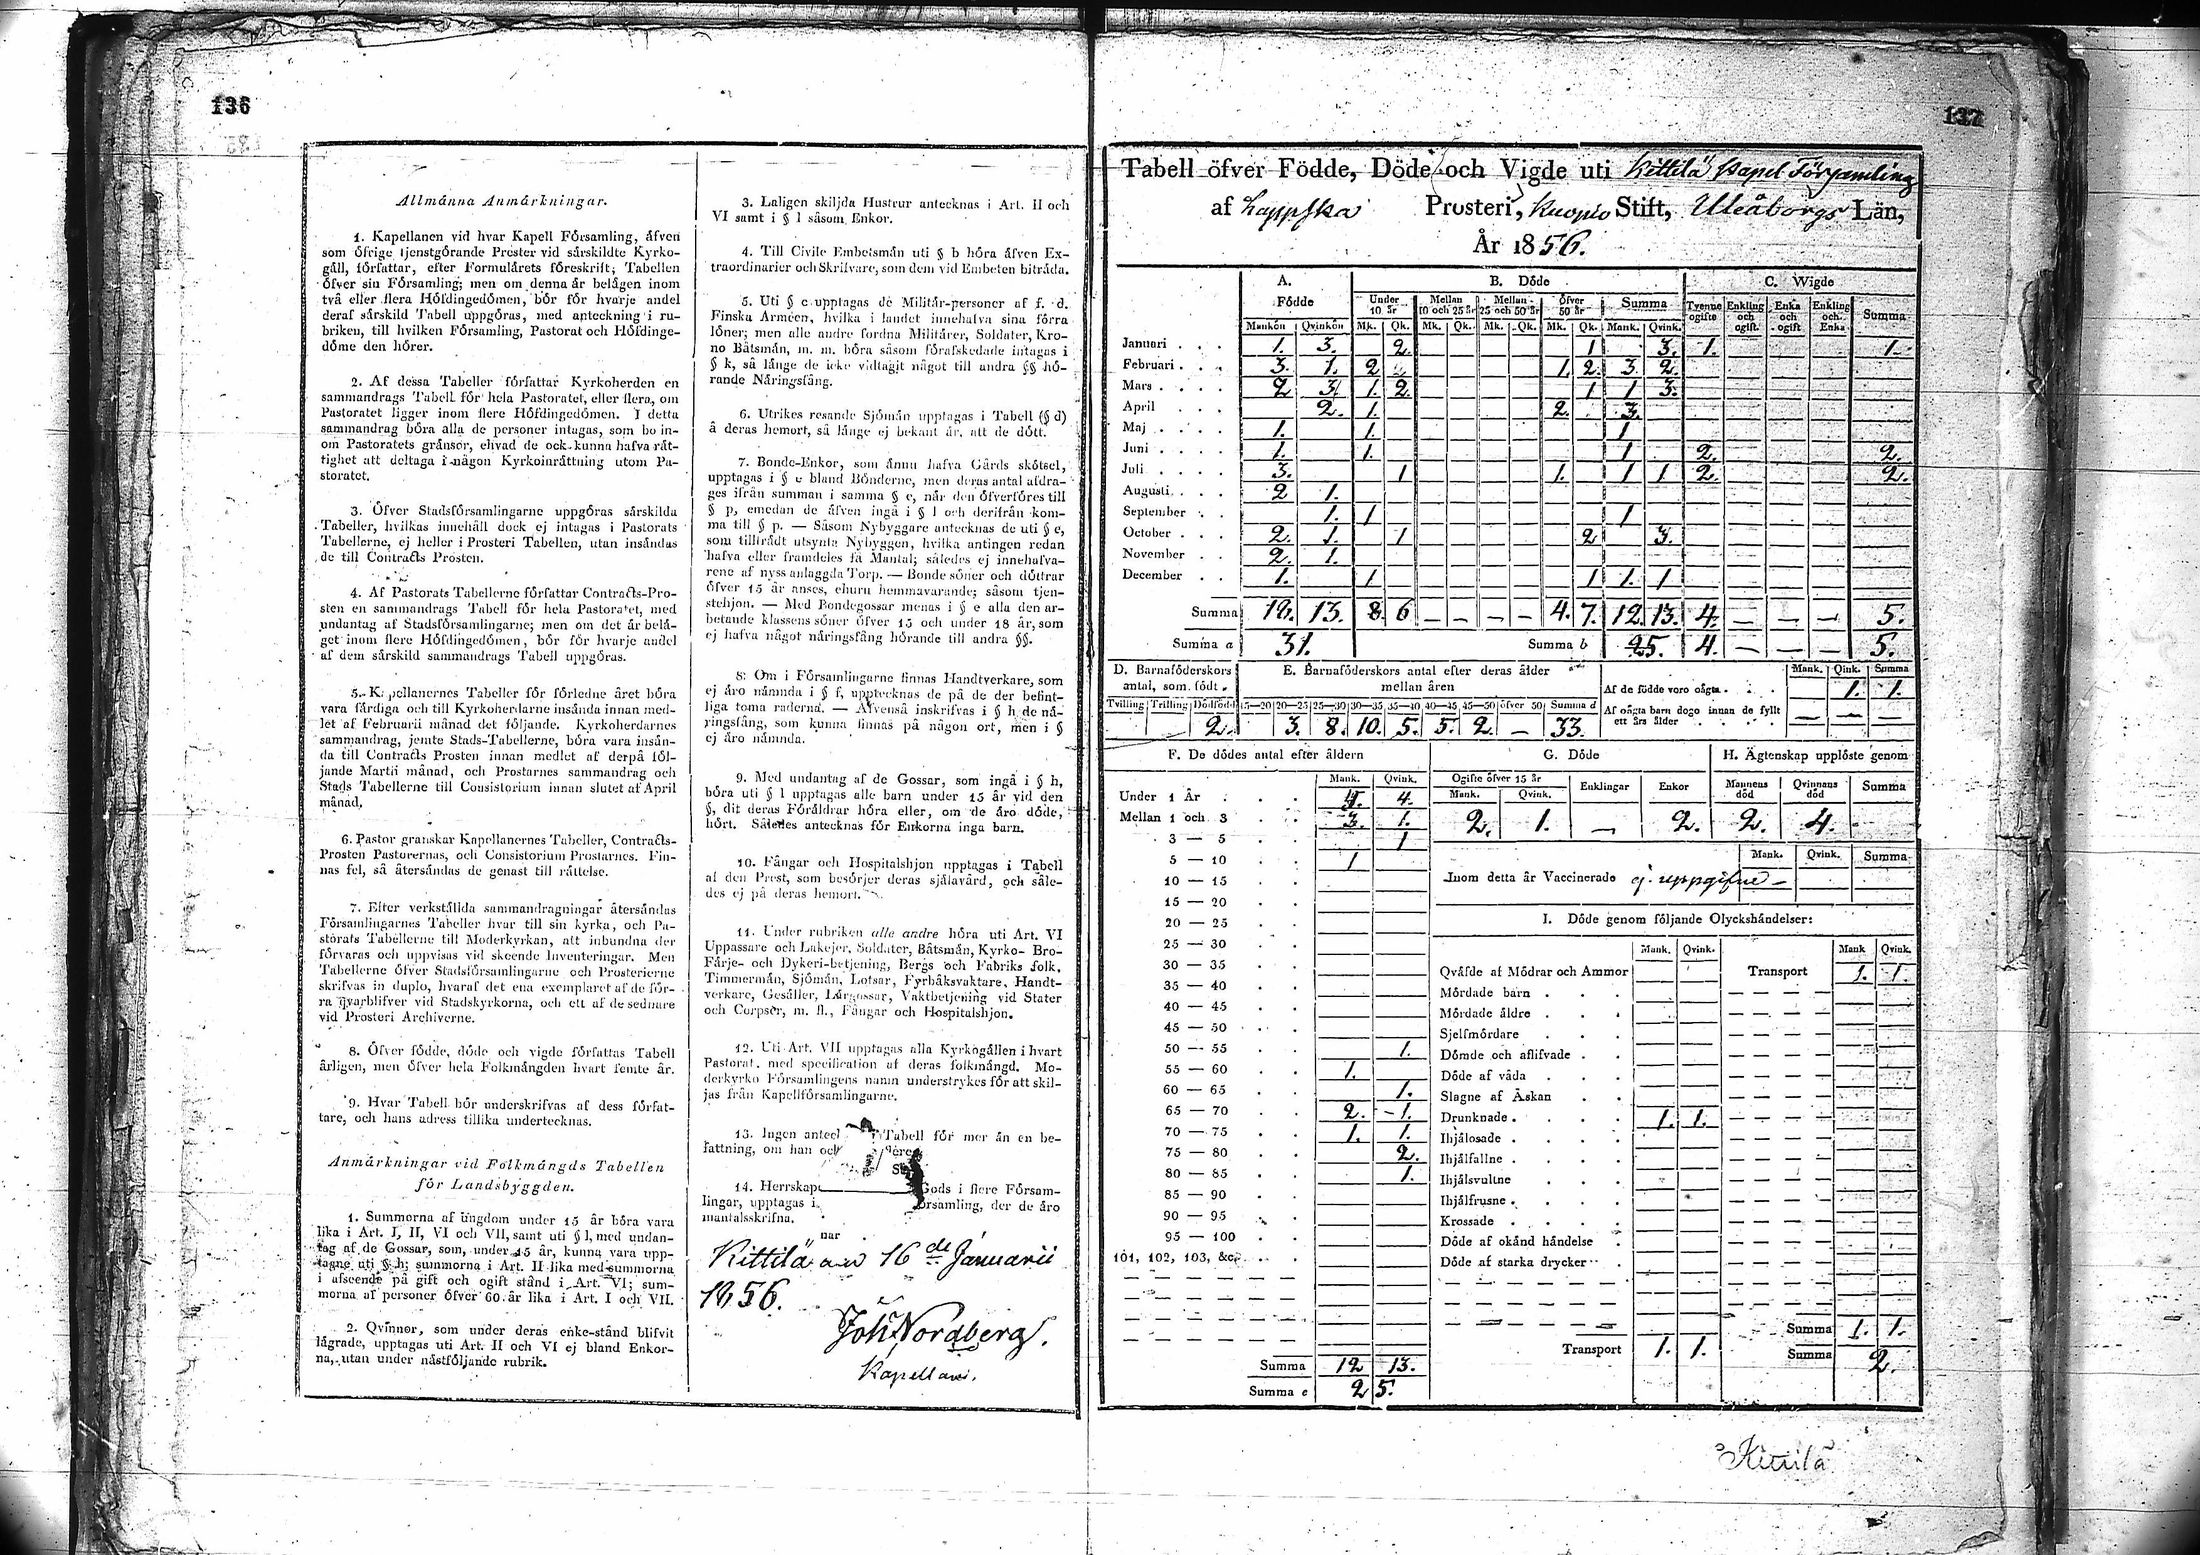 136
Allmánna Anmárkningar.
1. Kapellanen vid hvar Kapell Fórsamling, áfven
som ófrige tjenstgórande Prester vid sårskildte Kyrko-
gáll, fórfattar, efter Formulårets fóreskrift, Tabellen
ófver sin Fórsamling; men om denna år belågen inom
två eller flera Hófdingedómen, bór fór hvarje andel
deraf sårskild Tabell uppgóras, med apteckning i ru-
briken, till hvilken Fórsamling, Pastorat och Hófdinge-
dóme den hórer.
2. Af dessa Tabeller fórfattar Kyrkoherden en
sammandrags Tabell fór hela Pastoratet, eller flera, om
Pastoratet ligger inom flere Hófdingedómen. I detta
sammandrag bóra alla de personer intagas, som bo in-
om Pastoratets grånsor, ehvad de ock kunna hafva råt-
tighet att deltaga i någon Kyrkoinråttning utom Pa-
storatet.
3. Ófver Stadsfórsamlingarne uppgóras sårskilda
Tabeller, hvilkas innehåll dock ej intagas i Pastorats
Tabellerne, ej heller i Prosteri Tabellen, utan insåndas
de till Contracts Prosten.
4. Af Pastorats Tabellerne fórfattar Contracts-Pro-
sten en sammandrags Tabell fór hela Pastoratet, med
undantag af Stadsfórsamlingarne; men om det år belå-
get inom flere Hófdingedómen, bór fór hvarje andel
af dem sårskild sammandrags Tabell uppgóras.
5. Kapellanernes Tabeller fór fórledne året bóra
vara fårdiga och till Kyrkoherdarne insånda innan med-
let af Februarii månad det fóljande. Kyrkoherdarnes
sammandrag, jemte Stads-Tabellerne, bóra vara insån-
da till Contracts Prosten innan medlet af derpå fól-
jande Martii månad, och Prostarnes sammandrag och
Stads Tabellerne till Consistorium innan slutet af April
månad.
6. Pastor granskar Kapellanernes Tabeller, Contracts-
Prosten Pastorernas, och Consistorium Prostarnes. Fin-
nas fel, så återsåndas de genast till råttelse.
7. Efter verkstållda sammandragningar återsåndas
Fórsamlingarnes Tabeller hvar till sin kyrka, och Pa-
storats Tabellerne till Moderkyrkan, att inbundna der
fórvaras och uppvisas vid skeende Inventeringar. Men
Tabellerne ófver Stadsfórsamlingarne och Prosterierne
skrifvas in duplo, hvaraf det ena exemplaret af de fór-
ra qvarblifver vid Stadskyrkorna, och ett af de sednare
vid Prosteri Archiverne.
8. Ófver fódde, dóde och vigde fórfattas Tabell
årligen, men ófver hela Folkmångden hvart femte år.
9. Hvar Tabell bór underskrifvas af dess fórfat-
tare, och hans adress tillika undertecknas.
Anmárkningar vid Folkmångds Tabellen
fór Landsbyggden.
1. Summorna af ungdom under 15 år bóra vara
lika i Art. I, II, VI och VII, samt uti § l, med undan-
tag af de Gossar, som, under 15 år, kunna vara upp-
tagne uti § h; summorna i Art. II lika med summorna
i afseende på gift och ogift stånd i Art. VI; sum-
morna af personer ófver 60 år lika i Art. I och VII.
2. Qvinnor, som under deras enke-stånd blifvit
lågrade, upptagas uti Art. II och VI ej bland Enkor-
na, utan under nåstfóljande rubrik.
3. Laligen skiljda Hustrur antecknas i Art. II och
VI samt i § l såsom Enkor.
4. Till Civile Embetsmån uti § b hóra åfven Ex-
traordinarier och Skrifvare, som dem vid Embeten bitråda.
5. Uti § c upptagas de Militår-personer af f. d.
Finska Arméen, hvilka i landet innehafva sina fórra
lóner; men alle andre fordna Militårer, Soldater, Kro-
no Båtsmån, m. m. bóra såsom fórafskedade intagas i
§ k, så långe de icke vidtagit något till andra §§ hó-
rande Nåringsfång.
6. Utrikes resande Sjómån upptagas i Tabell (§ d)
å deras hemort, så långe ej bekant år, att de dótt.
7. Bonde-Enkor, som ånnu hafva Gårds skótsel,
upptagas i § e bland Bónderne, men deras antal afdra-
ges ifrån summan i samma § e, når den ófverfóres till
§ p, emedan de åfven ingå i § l och derifrån kom-
ma till § p. — Såsom Nybyggare antecknas de uti § e,
som tilltrådt utsynta Nybyggen, hvilka antingen redan
hafva eller framdeles få Mantal; således ej innehafva-
rene af nyss anlaggda Torp. — Bonde sóner och dóttrar
ófver 15 år anses, ehuru hemmavarande; såsom tjen-
stehjon. — Med Bondegossar menas i § e alla den ar-
betande klassens sóner ófver 15 och under 18 år, som
ej hafva något nåringsfång hórande till andra §§.
8. Om i Fórsamlingarne finnas Handtverkare, som
ej åro nåmnda i § f, upptecknas de på de der befint-
liga toma raderna. — Åfvenså inskrifvas i § h de nå-
ringsfång, som kunna finnas på någon ort, men i §
ej åro nåmnda.
9. Med undantag af de Gossar, som ingå i § h,
bóra uti § l upptagas alle barn under 15 år vid den
§, dit deras Fóråldrar hóra eller, om de åro dóde,
hórt. Således antecknas fór Enkorna inga barn.
10. Fångar och Hospitalshjon upptagas i Tabell
af den Prest, som besórjer deras sjålavård, och såle-
des ej på deras hemort.
11. Under rubriken alle andre hóra uti Art. VI
Uppassare och Lakejer, Soldater, Båtsmån, Kyrko- Bro-
Fårje- och Dykeri-betjening, Bergs och Fabriks folk,
Timmermån, Sjómån, Lotsar, Fyrbåksvaktare, Handt-
verkare, Gesåller, Lårgossar, Vaktbetjening vid Stater
och Corpser, m. fl., Fångar och Hospitalshjon.
12. Uti Art. VII upptagas alla Kyrkogållen i hvart
Pastorat, med specification af deras folkmångd. Mo-
derkyrko Fórsamlingens namn understrykes fór att skil-
jas från Kapellfórsamlingarne.
13. Ingen antec Tabell fór mer ån en be-
fattning, om han och flere
14. Herrskap Gods i flere Fórsam-
lingar, upptagas i orsamling, der de åro
mantalsskrifna.
Kittilä 16de Januarii
1856.
Joh Nordberg.
Kapellan.
137
Tabell öfver Födde, Döde och Vigde uti Kittilä Kapel Församling
af Lappska Prosteri, Kuopio Stift, Uleåborgs Län,
År 1856.
A. B. Dóde C. Wigde
Fódde Under 10 år Mellan 10 och 25 år Mellan 25 och 50 år Ófver 50 år Summa Tvenne ogifte Enkling och ogift. Enka och ogift Enkling och Enka Summa
Mankón Qvinkón Mk. Qk. Mk. Qk. Mk. Qk. Mk. Qk. Mank. Qvink.
Januari 1. 3. 2. 1 3. 1. 1.
Februari 3. 1. 2 1. 2. 3. 2.
Mars 2 3. 1. 2. 1 1 3.
April 2. 1. 2. 3.
Maj 1. 1. 1
Juni 1. 1. 1 2. 2.
Juli 3. 1 1. 1 1 2. 2.
Augusti 2 1.
September 1. 1 1
October 2. 1. 1 2 3.
November 2. 1.
December 1. 1 1 1. 1
Summa 18. 13. 8. 6 — — — — 4. 7. 12. 13. 4. — — — 5.
Summa a 31. Summa b 25. 4. — — — 5.
D. Barnafóderskors antal, som fódt E. Barnafóderskors antal efter deras ålder mellan åren
Mank. Qink. Summa
Af de fódde voro oågta 1. 1.
Af oågta barn dogo innan de fyllt ett års ålder — — —
Tvilling Trilling Dódfódt 15—20 20—25 25—30 30—35 35—40 40—45 45—50 ófver 50 Summa d
2. 3. 8. 10. 5. 5. 2. — 33.
F. De dódes antal efter åldern
Mank. Qvink.
Under 1 År 4.
Mellan 1 och 3 3. 1.
3 — 5 1
5 — 10 1
10 — 15
15 — 20
20 — 25
25 — 30
30 — 35
35 — 40
40 — 45
45 — 50
50 — 55 1.
55 — 60 1.
60 — 65 1.
65 — 70 2. 1.
70 — 75 1. 1.
75 — 80 2.
80 — 85 1.
85 — 90
90 — 95
95 — 100
101, 102, 103, &c.
Summa 12 13.
Summa e 25.
G. Dóde H. Ägtenskap upplóste genom
Ogifte ófver 15 år Enklingar Enkor Mannens dód Qvinnans dód Summa
Mank. Qvink.
2. 1. — 2. 2. 4.
Mank. Qvink. Summa
Inom detta år Vaccinerade ej uppgifne —
I. Dóde genom fóljande Olyckshåndelser:
Mank. Qvink. Mank Qvink.
Qvåfde af Módrar och Ammor Transport 1. 1.
Mórdade barn
Mórdade åldre
Sjelfmórdare
Dómde och aflifvade
Dóde af våda
Slagne af Åskan
Drunknade 1. 1.
Ihjålosade
Ihjålfallne
Ihjålsvultne
Ihjålfrusne
Krossade
Dóde af okånd håndelse
Dóde af starka drycker
Summa 1. 1.
Transport 1. 1. Summa 2.
Kittilä